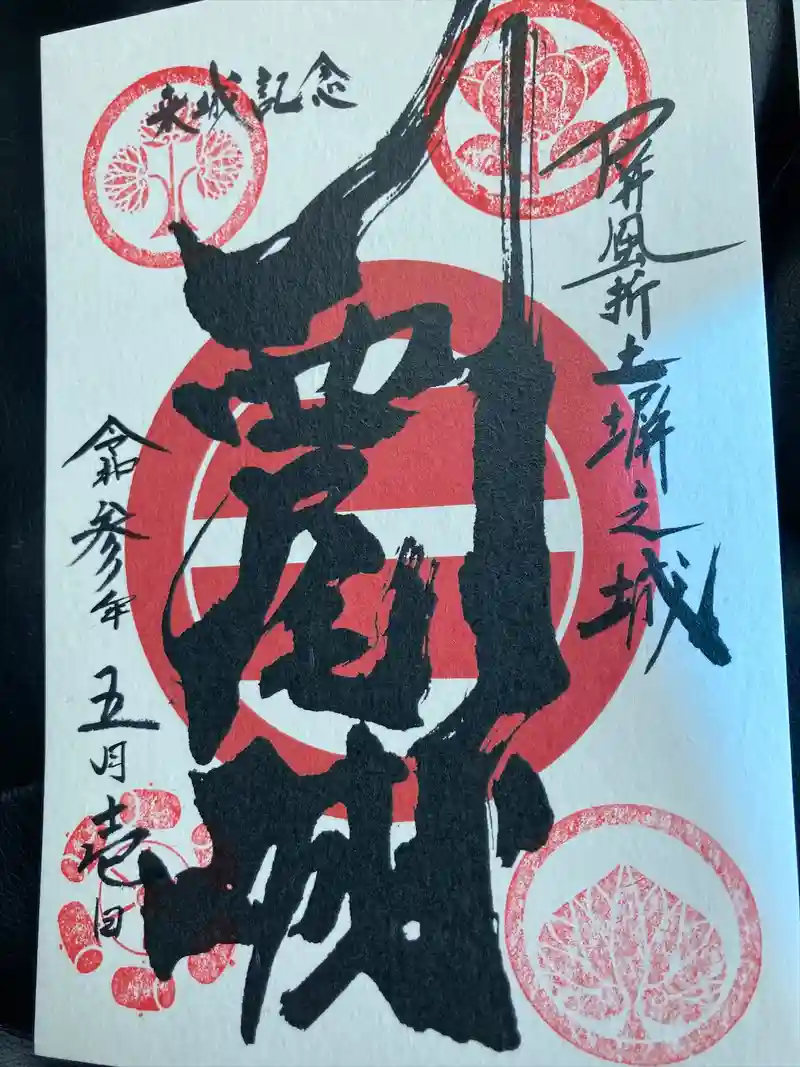 屏風折土塀之城
来城記念
西尾城
令和参年五月壱日